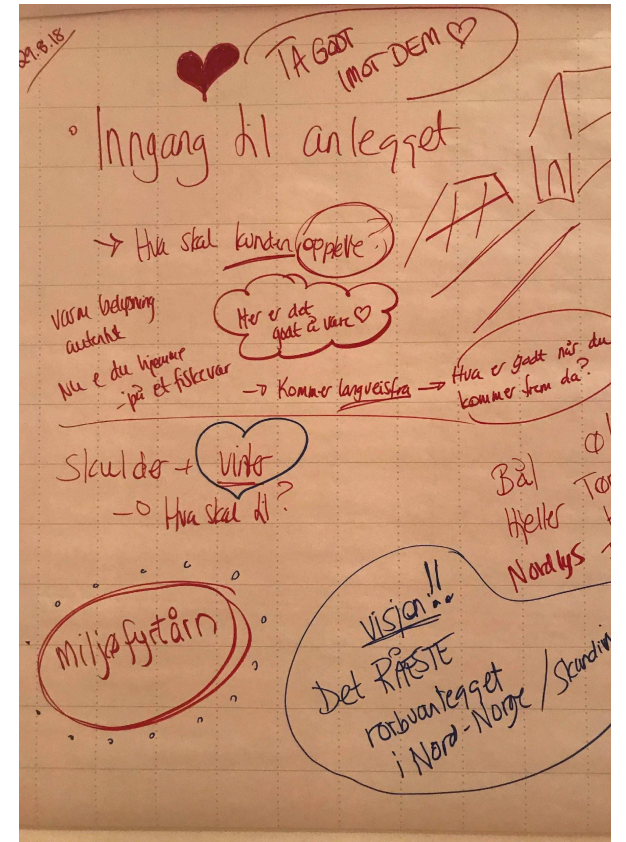 29.8.18
TA GODT
IMOT DEM ♡
• Inngang til anlegget
INN
→ Hva skal kunden oppleve?
varm belysning
autentisk
Nu e du hjemme
- på et fiskevær
Her er det
godt å være ♡
→ Kommer langveisfra →
Hva er godt når du
kommer frem da?
Skulder + vinter
→ Hva skal til?
Bål
Hjeller
Nordlys
Miljøfyrtårn
Visjon!!
Det RÅESTE
rorbuanlegget
i Nord-Norge / Skandin